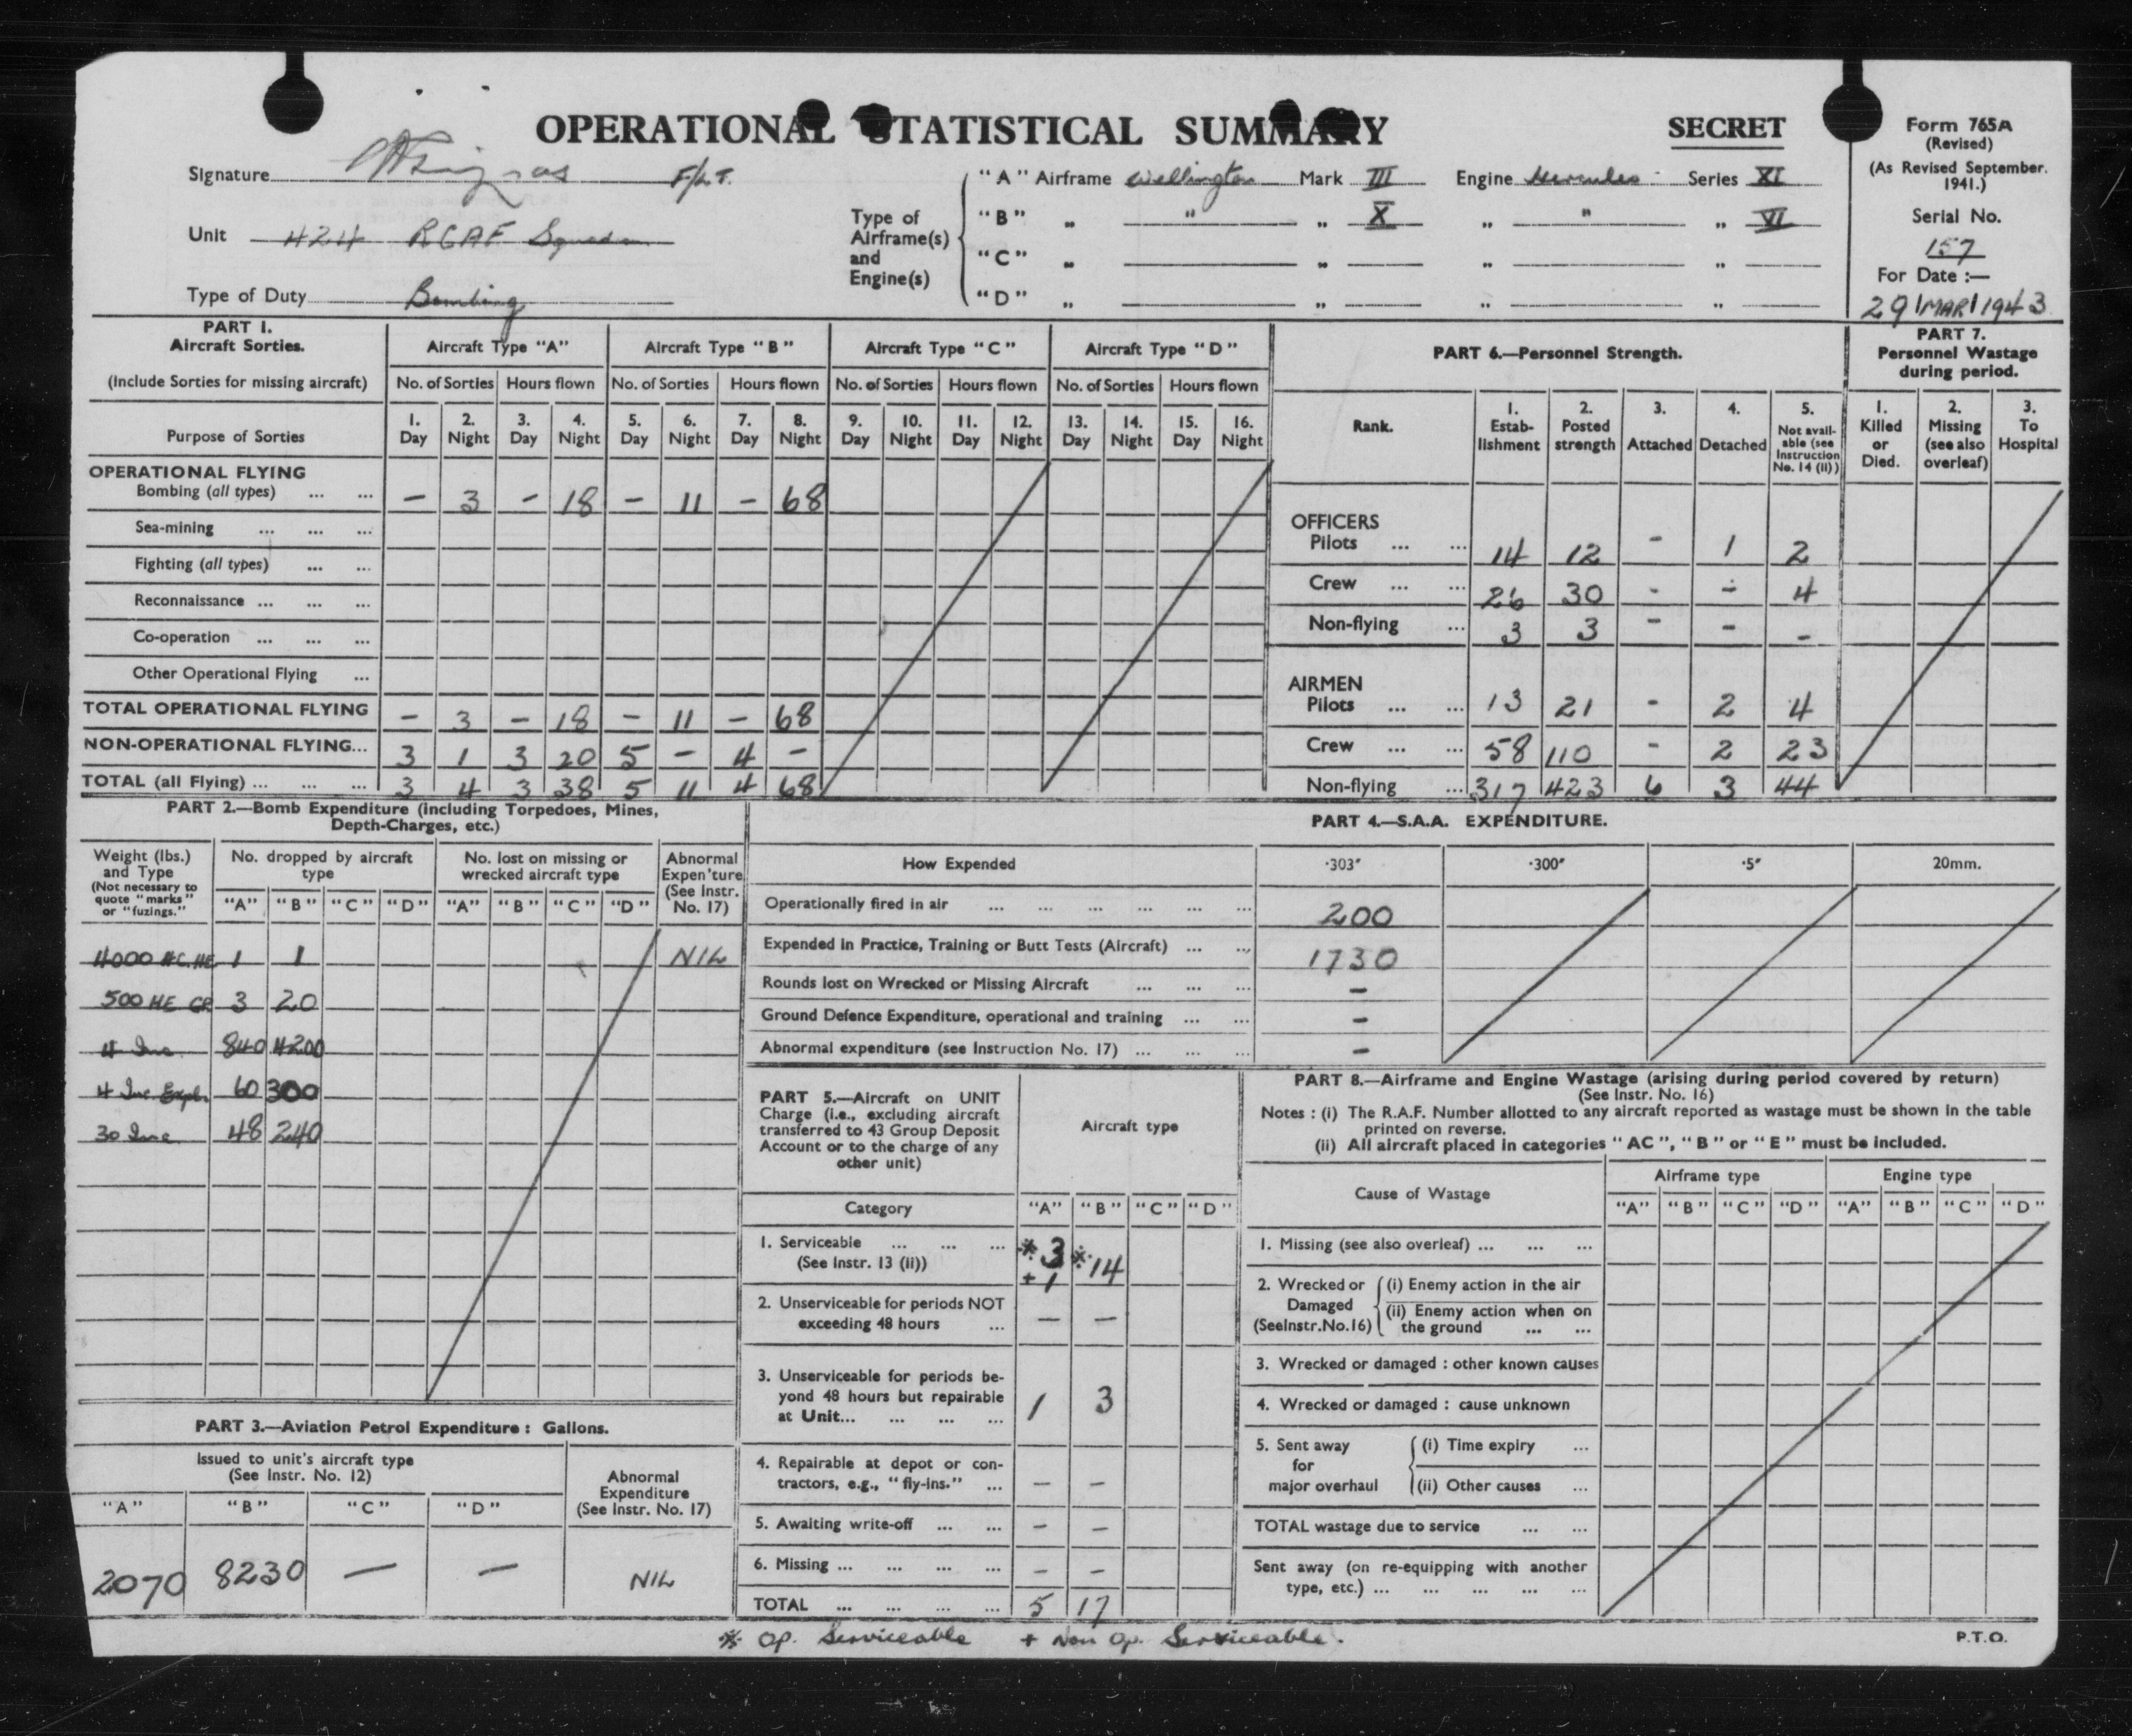 OPERATIONAL STATISTICAL SUMMARY SECRET
Form 765A
(Revised)
(As Revised September.
1941.)
Signature F/LT.
Unit 424 RCAF Squadron
Type of Duty Bombing
Type of
Airframe(s)
and
Engine(s)
"A" Airframe Wellington Mark III Engine Hercules Series XI
"B" „ " „ X „ " „ VI
"C" „ „ „ „
"D" „ „ „ „
Serial No.
157
For Date :—
29 MAR 1943
PART 1.
Aircraft Sorties.
(Include Sorties for missing aircraft)
Aircraft Type "A" Aircraft Type "B" Aircraft Type "C" Aircraft Type "D"
No. of Sorties Hours flown No. of Sorties Hours flown No. of Sorties Hours flown No. of Sorties Hours flown
Purpose of Sorties
1. Day 2. Night 3. Day 4. Night 5. Day 6. Night 7. Day 8. Night 9. Day 10. Night 11. Day 12. Night 13. Day 14. Night 15. Day 16. Night
OPERATIONAL FLYING
Bombing (all types) ... ... — 3 — 18 — 11 — 68
Sea-mining ... ... ...
Fighting (all types) ... ...
Reconnaissance ... ... ...
Co-operation ... ... ...
Other Operational Flying ...
TOTAL OPERATIONAL FLYING — 3 — 18 — 11 — 68
NON-OPERATIONAL FLYING... 3 1 3 20 5 — 4 —
TOTAL (all Flying) ... ... ... 3 4 3 38 5 11 4 68
PART 6.—Personnel Strength.
Rank.
1. Estab-lishment 2. Posted strength 3. Attached 4. Detached 5. Not avail-able (see Instruction No. 14 (ii))
OFFICERS
Pilots ... ... 14 12 - 1 2
Crew ... ... 26 30 - - 4
Non-flying ... 3 3 - - -
AIRMEN
Pilots ... ... 13 21 - 2 4
Crew ... ... 58 110 - 2 23
Non-flying ... 317 423 6 3 44
PART 7.
Personnel Wastage
during period.
1. Killed or Died. 2. Missing (see also overleaf) 3. To Hospital
PART 2.—Bomb Expenditure (including Torpedoes, Mines,
Depth-Charges, etc.)
Weight (lbs.)
and Type
(Not necessary to
quote "marks"
or "fuzings."
No. dropped by aircraft
type
No. lost on missing or
wrecked aircraft type
Abnormal
Expen'ture
(See Instr.
No. 17)
"A" "B" "C" "D" "A" "B" "C" "D"
4000 HC. HE 1 1 NIL
500 HE GP 3 20
4 Inc. 840 4200
4 Inc Expl. 60 300
30 Inc 48 240
PART 3.—Aviation Petrol Expenditure : Gallons.
Issued to unit's aircraft type
(See Instr. No. 12)
Abnormal
Expenditure
(See Instr. No. 17)
"A" "B" "C" "D"
2070 8230 — — NIL
PART 4.—S.A.A. EXPENDITURE.
How Expended ·303" ·300" ·5" 20mm.
Operationally fired in air ... ... ... ... ... ... 200
Expended in Practice, Training or Butt Tests (Aircraft) ... ... 1730
Rounds lost on Wrecked or Missing Aircraft ... ... ... —
Ground Defence Expenditure, operational and training ... ... —
Abnormal expenditure (see Instruction No. 17) ... ... ... —
PART 5.—Aircraft on UNIT
Charge (i.e., excluding aircraft
transferred to 43 Group Deposit
Account or to the charge of any
other unit)
Aircraft type
Category "A" "B" "C" "D"
1. Serviceable ... ... ... * 3 * 14
(See Instr. 13 (ii)) + 1
2. Unserviceable for periods NOT
exceeding 48 hours ... — —
3. Unserviceable for periods be-
yond 48 hours but repairable
at Unit... ... ... ... 1 3
4. Repairable at depot or con-
tractors, e.g., "fly-ins." ... — —
5. Awaiting write-off ... ... — —
6. Missing ... ... ... ... — —
TOTAL ... ... ... ... 5 17
PART 8.—Airframe and Engine Wastage (arising during period covered by return)
(See Instr. No. 16)
Notes : (i) The R.A.F. Number allotted to any aircraft reported as wastage must be shown in the table
printed on reverse.
(ii) All aircraft placed in categories "AC", "B" or "E" must be included.
Cause of Wastage Airframe type Engine type
"A" "B" "C" "D" "A" "B" "C" "D"
1. Missing (see also overleaf) ... ... ...
2. Wrecked or Damaged (SeeInstr.No.16)
(i) Enemy action in the air
(ii) Enemy action when on
the ground ... ...
3. Wrecked or damaged : other known causes
4. Wrecked or damaged : cause unknown
5. Sent away for major overhaul
(i) Time expiry ...
(ii) Other causes ...
TOTAL wastage due to service ... ...
Sent away (on re-equipping with another
type, etc.) ... ... ... ... ...
* Op. Serviceable + Non Op. Serviceable.
P.T.O.